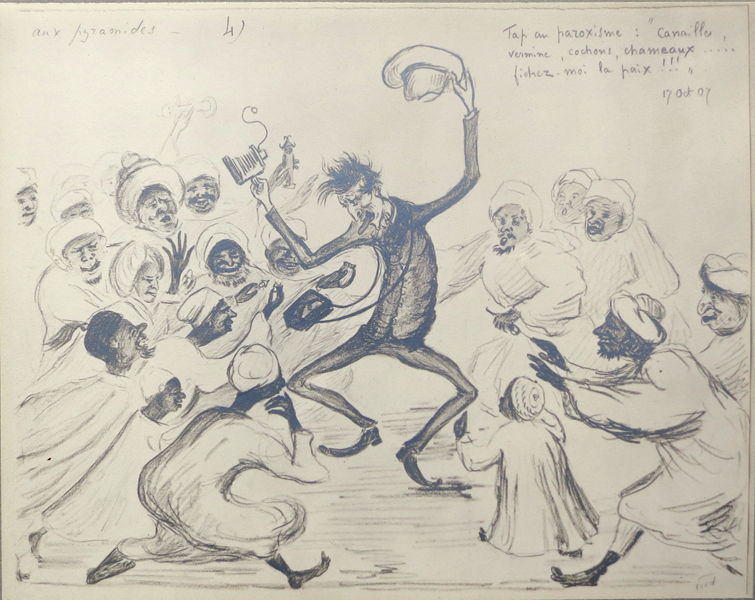 aux pyramides - 4)
Tap au paroxisme : "canailles,
vermine, cochons, chameaux .....
fichez-moi la paix !!! „
17 Oct 07